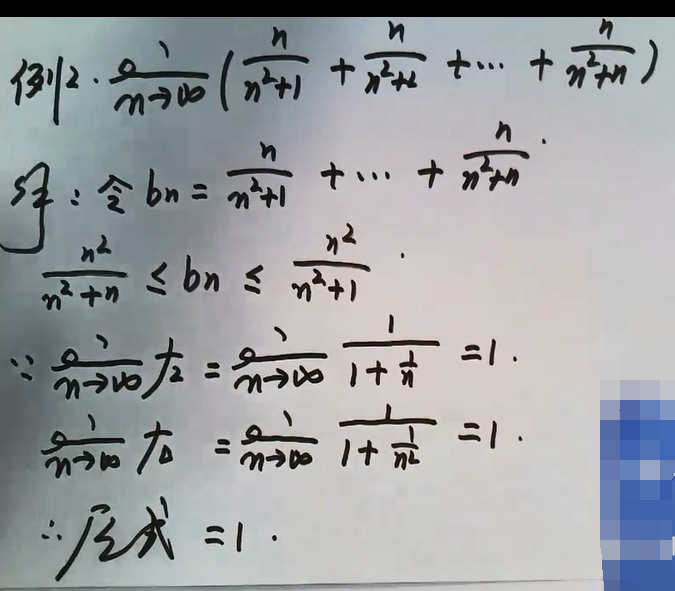 例2. lim n→∞ ( n/(n²+1) + n/(n²+2) + ⋯ + n/(n²+n) )
解: 令 bn = n/(n²+1) + ⋯ + n/(n²+n).
n²/(n²+n) ≤ bn ≤ n²/(n²+1).
∵ lim n→∞ 左 = lim n→∞ 1/(1+1/n) = 1.
lim n→∞ 右 = lim n→∞ 1/(1+1/n²) = 1.
∴ 原式 = 1.